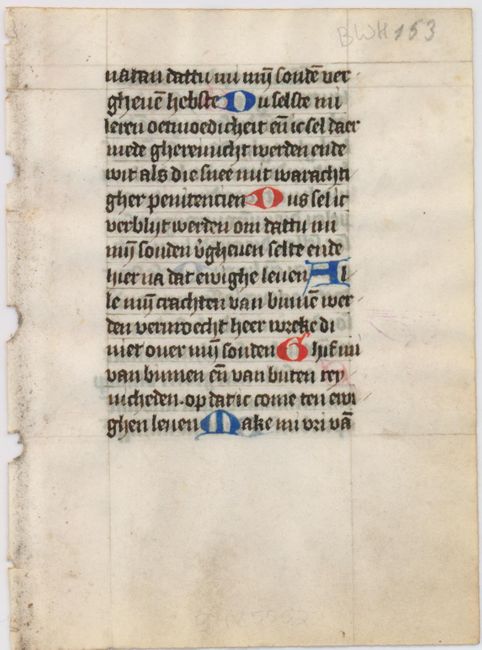 BWH 153
dattu mi mij sondē ver
gheuē hebste Du selste mi
leren oetmoedicheit eñ ic sel daer
mede ghereinicht werden ende
wit als die snee mit warachti
gher penitencien Dus sel ic
verblijt werden om dattu mi
mij sonden v̄gheuen selte ende
hier na dat ewighe leuen Al
le mij crachten van binnē wer
den vermoecht heer wreke di
niet ouer mij sonden Ghif mi
van binnen eñ van buten rey
nicheden · op dat ic come ten ewi
ghen leuen Make mi vri vā